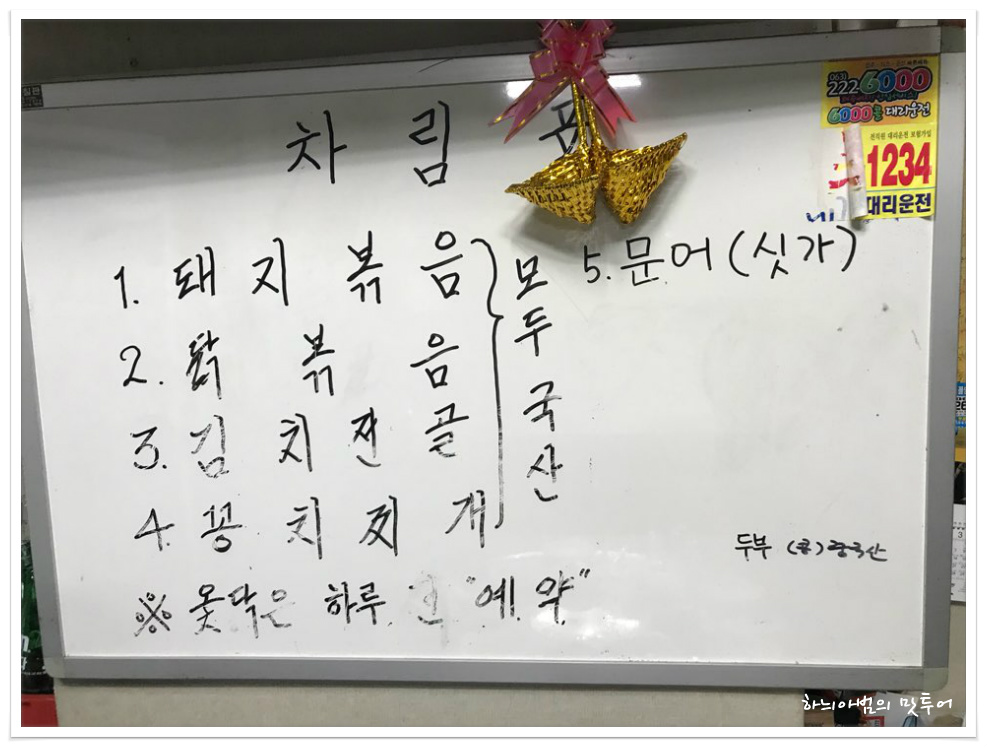 차림표
1. 돼지볶음
2. 닭볶음
3. 김치전골
4. 꽁치찌개
모두 국산
5. 문어(싯가)
두부 (콩) 중국산
※ 옻닭은 하루 전 "예약"
063)
222 6000
6000콜 대리운전
전직원 대리운전 보험가입
1234
대리운전
하늬아범의 맛투어